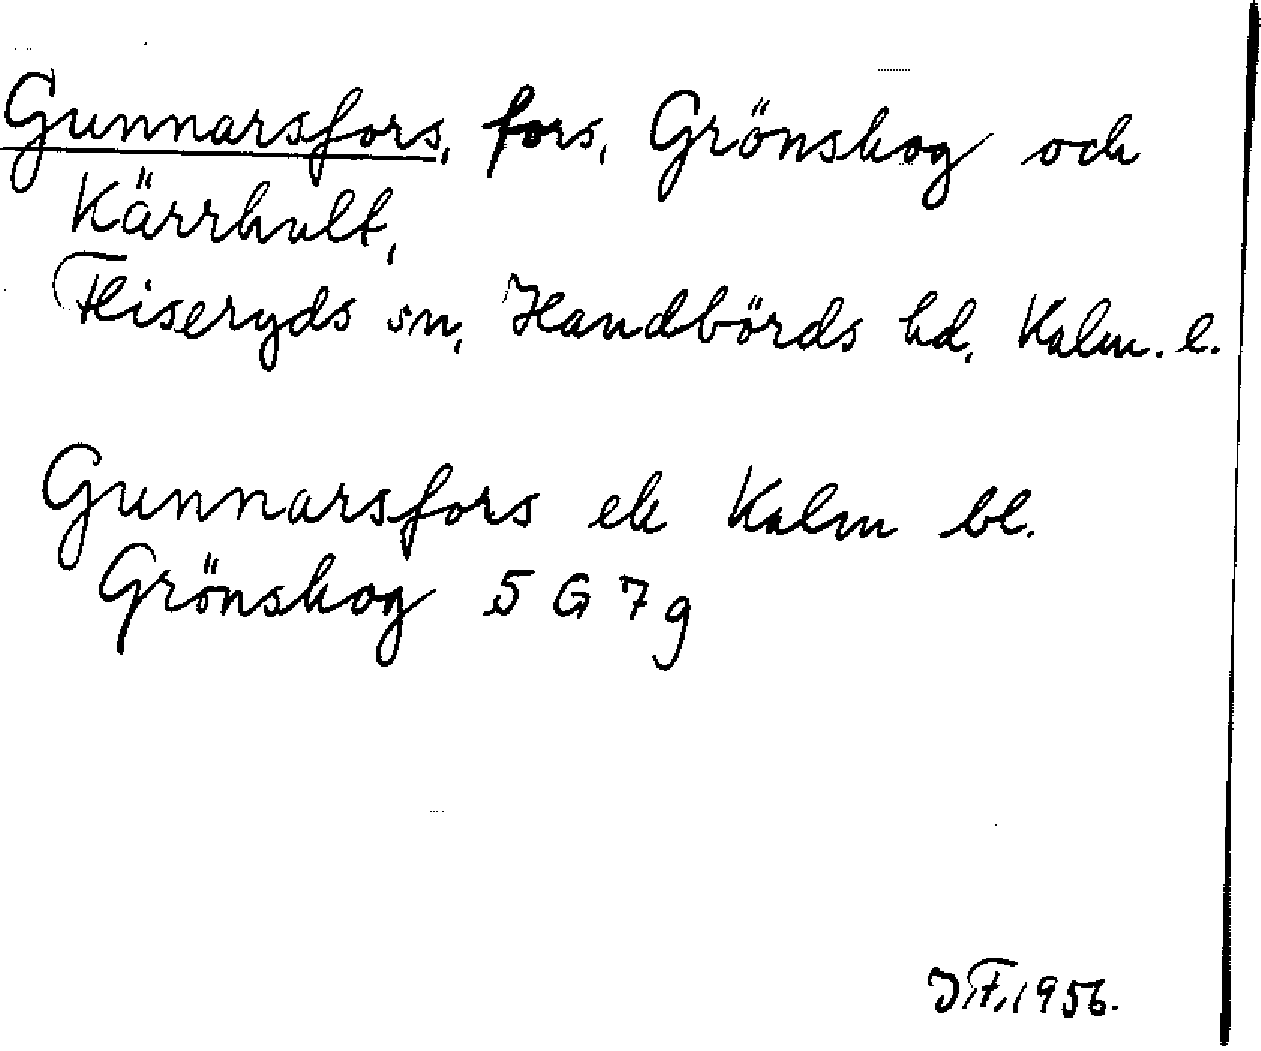 Gunnarsfors, fors, Grönskog och
Kärrhult,
Fliseryds sn, Handbörds hd, Kalm. l.
Gunnarsfors ek Kalm bl.
Grönskog 5 G 7 g
J.F. 1956.